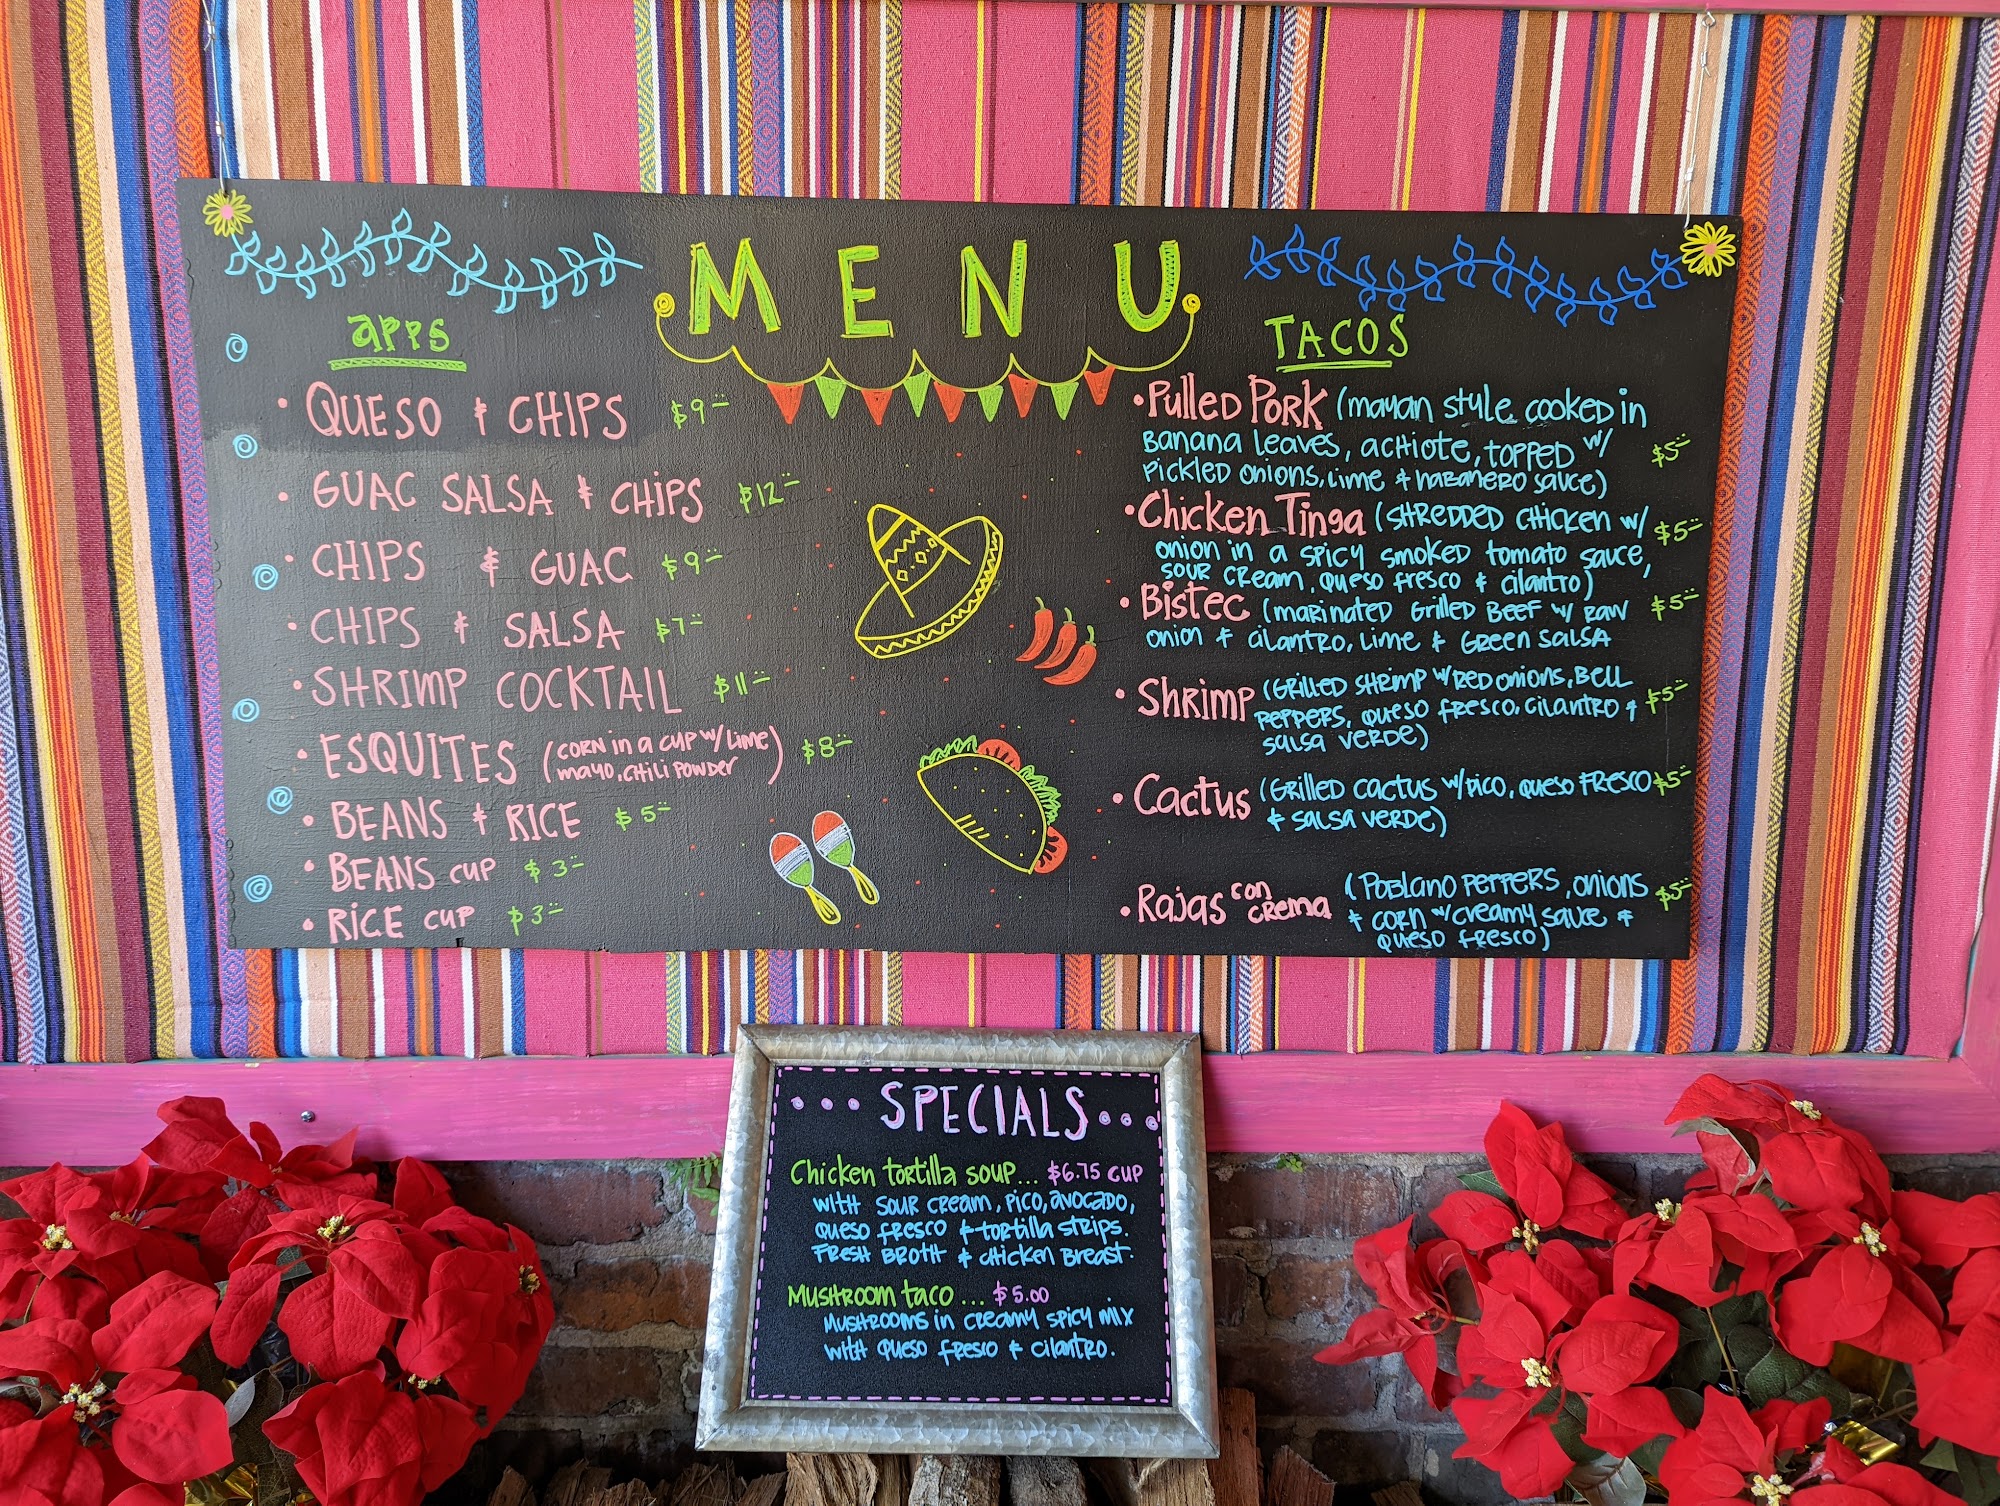 MENU
APPS
• QUESO & CHIPS $9-
• GUAC SALSA & CHIPS $12-
• CHIPS & GUAC $9-
• CHIPS & SALSA $7-
• SHRIMP COCKTAIL $11-
• ESQUITES (CORN in a CUP w/ Lime
mayo, CHILI POWDER) $8-
• BEANS & RICE $5-
• BEANS CUP $3-
• RICE CUP $3-
TACOS
• PULLED PORK (mayan style cooked in
Banana leaves, achiote, topped w/
pickled onions, lime & habanero sauce) $5-
• Chicken Tinga (SHREDDED CHICKEN w/
onion in a spicy smoked tomato sauce,
sour cream, queso fresco & cilantro) $5-
• Bistec (marinated Grilled Beef w/ raw
onion & cilantro, Lime & Green Salsa $5-
• Shrimp (Grilled Shrimp w/ Red onions, Bell
peppers, queso fresco, cilantro &
salsa verde) $5-
• Cactus (Grilled cactus w/ pico, queso fresco
& salsa verde) $5-
• Rajas con crema (Poblano peppers, onions
& corn w/ creamy sauce &
queso fresco) $5-
... SPECIALS ...
Chicken tortilla soup... $6.75 CUP
with sour cream, pico, avocado,
queso fresco & tortilla strips.
Fresh broth & chicken breast.
Mushroom taco ... $5.00
Mushrooms in creamy spicy mix
with queso fresco & cilantro.